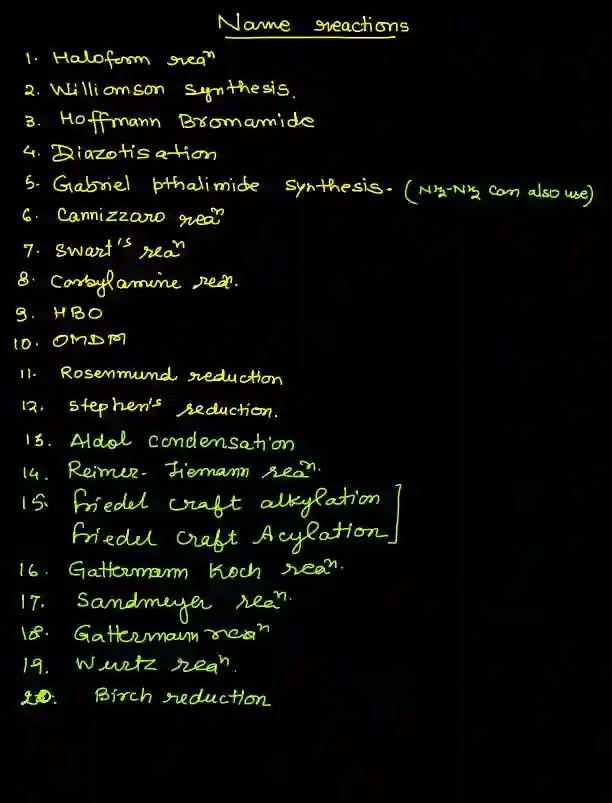 Name reactions
1. Haloform reaⁿ
2. Williomson synthesis.
3. Hoffmann Bromamide
4. Diazotisation
5. Gabriel pthalimide synthesis. (NH₂-NH₂ can also use)
6. Cannizzaro reaⁿ
7. Swart's reaⁿ
8. Carbylamine rea.
9. HBO
10. OMDM
11. Rosenmund reduction
12. Stephen's reduction.
13. Aldol condensation
14. Reimer-Tiemann reaⁿ.
15. Friedel craft alkylation
Friedel craft Acylation
16. Gattermann Koch reaⁿ.
17. Sandmeyer reaⁿ.
18. Gattermann reaⁿ
19. Wurtz reaⁿ.
20. Birch reduction